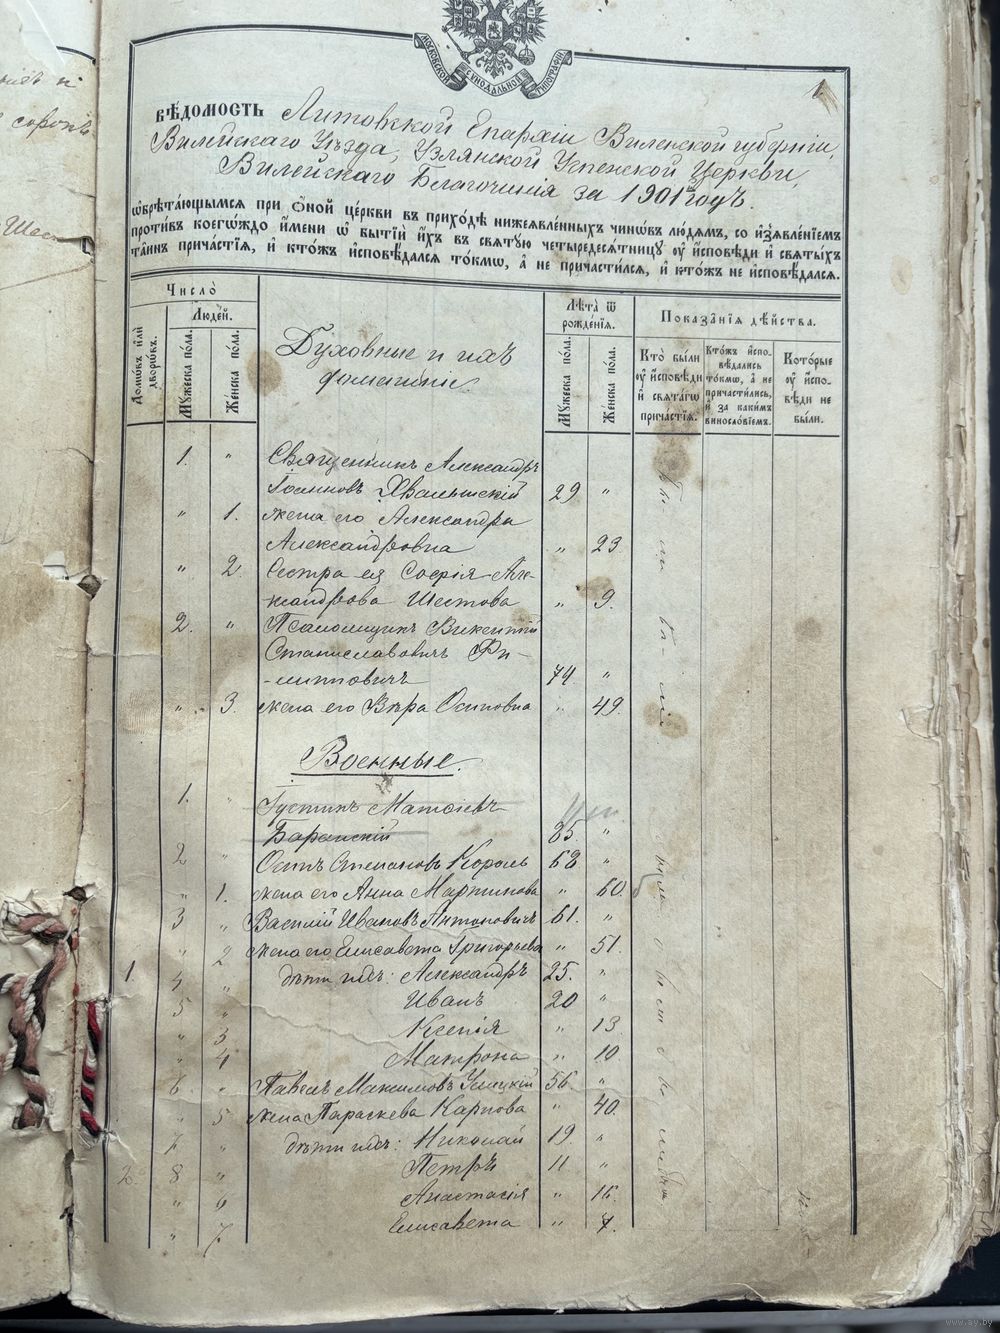 МОСКОВСКОЙ СѴНОДАЛЬНОЙ ТИПОГРАФІИ
1
ВѢДОМОСТЬ Литовской Епархіи Виленской губерніи,
Вилейскаго Уѣзда, Узлянской Успенской Церкви,
Вилейскаго Благочинія за 1901 годъ.
ѡ҆брѣта́ющымсѧ при ѻ҆́ной це́ркви въ прихо́дѣ нижеꙗ҆вле́нныхъ чинѡ́въ лю́демъ, со и҆з̾ѧвле́нїемъ
про́тивъ коегѡ́ждо и҆́мени ѡ҆ бытїѝ и҆́хъ въ свѧтꙋ́ю четыредесѧ́тницꙋ ᲂу҆ и҆сповѣ́ди и҆ свѧты́хъ
та́инъ прича́стїѧ, и҆ кто́жъ и҆сповѣ́дался то́кмѡ, а҆ не причасти́лся, и҆ кто́жъ не и҆сповѣ́дался.
Число̀
Люде́й.
Домѡ́въ и҆лѝ дворѡ́въ.
Мꙋ́жеска по́ла.
Же́нска по́ла.
Духовные и ихъ
домашніе.
Лѣ́та ѿ
рожде́нїѧ.
Мꙋ́жеска по́ла.
Же́нска по́ла.
Показа̂нїѧ дѣ́йства.
Кто̀ бы́ли
ᲂу҆ и҆сповѣ́ди
и҆ свѧта́гѡ
прича́стїѧ.
Кто́жъ и҆спо-
вѣ́дались
то́кмѡ, а҆ не
причасти́лись,
и҆ за каки́мъ
винословїемъ.
Кото́рые
ᲂу҆ и҆спо-
вѣ́ди не
бы́ли.
1. " Священникъ Александръ
Іоанновъ Хвалынскій 29 "
" 1. жена его Александра
Александровна " 23
" 2. Сестра ея Софія Але-
ксандрова Шестова " 9.
2. " Псаломщикъ Викентій
Станиславовичъ Фи-
-липповичъ 74 "
" 3. жена его Вѣра Осиповна " 49.
Военные.
1. " Густинъ Матѳіевъ
Баранскій 85 "
2 " Осипъ Степановъ Король 68 "
" 1. жена его Анна Мартинова " 60.
3 " Василій Ивановъ Антоновичъ 61. "
" 2 жена его Елисавета Григорьева " 51.
1. 4 " дѣти ихъ: Александръ 25. "
5 " Иванъ 20 "
" 3 Ксенія " 13
" 4 Матрона " 10
6 " Павелъ Максимовъ 56 "
" 5 жена Параскева Карпова " 40.
7 " дѣти ихъ: Николай 19. "
2 8 " Петръ 11 "
" 6 Анастасія " 16.
" 7. Елисавета " 7.
www.ay.by